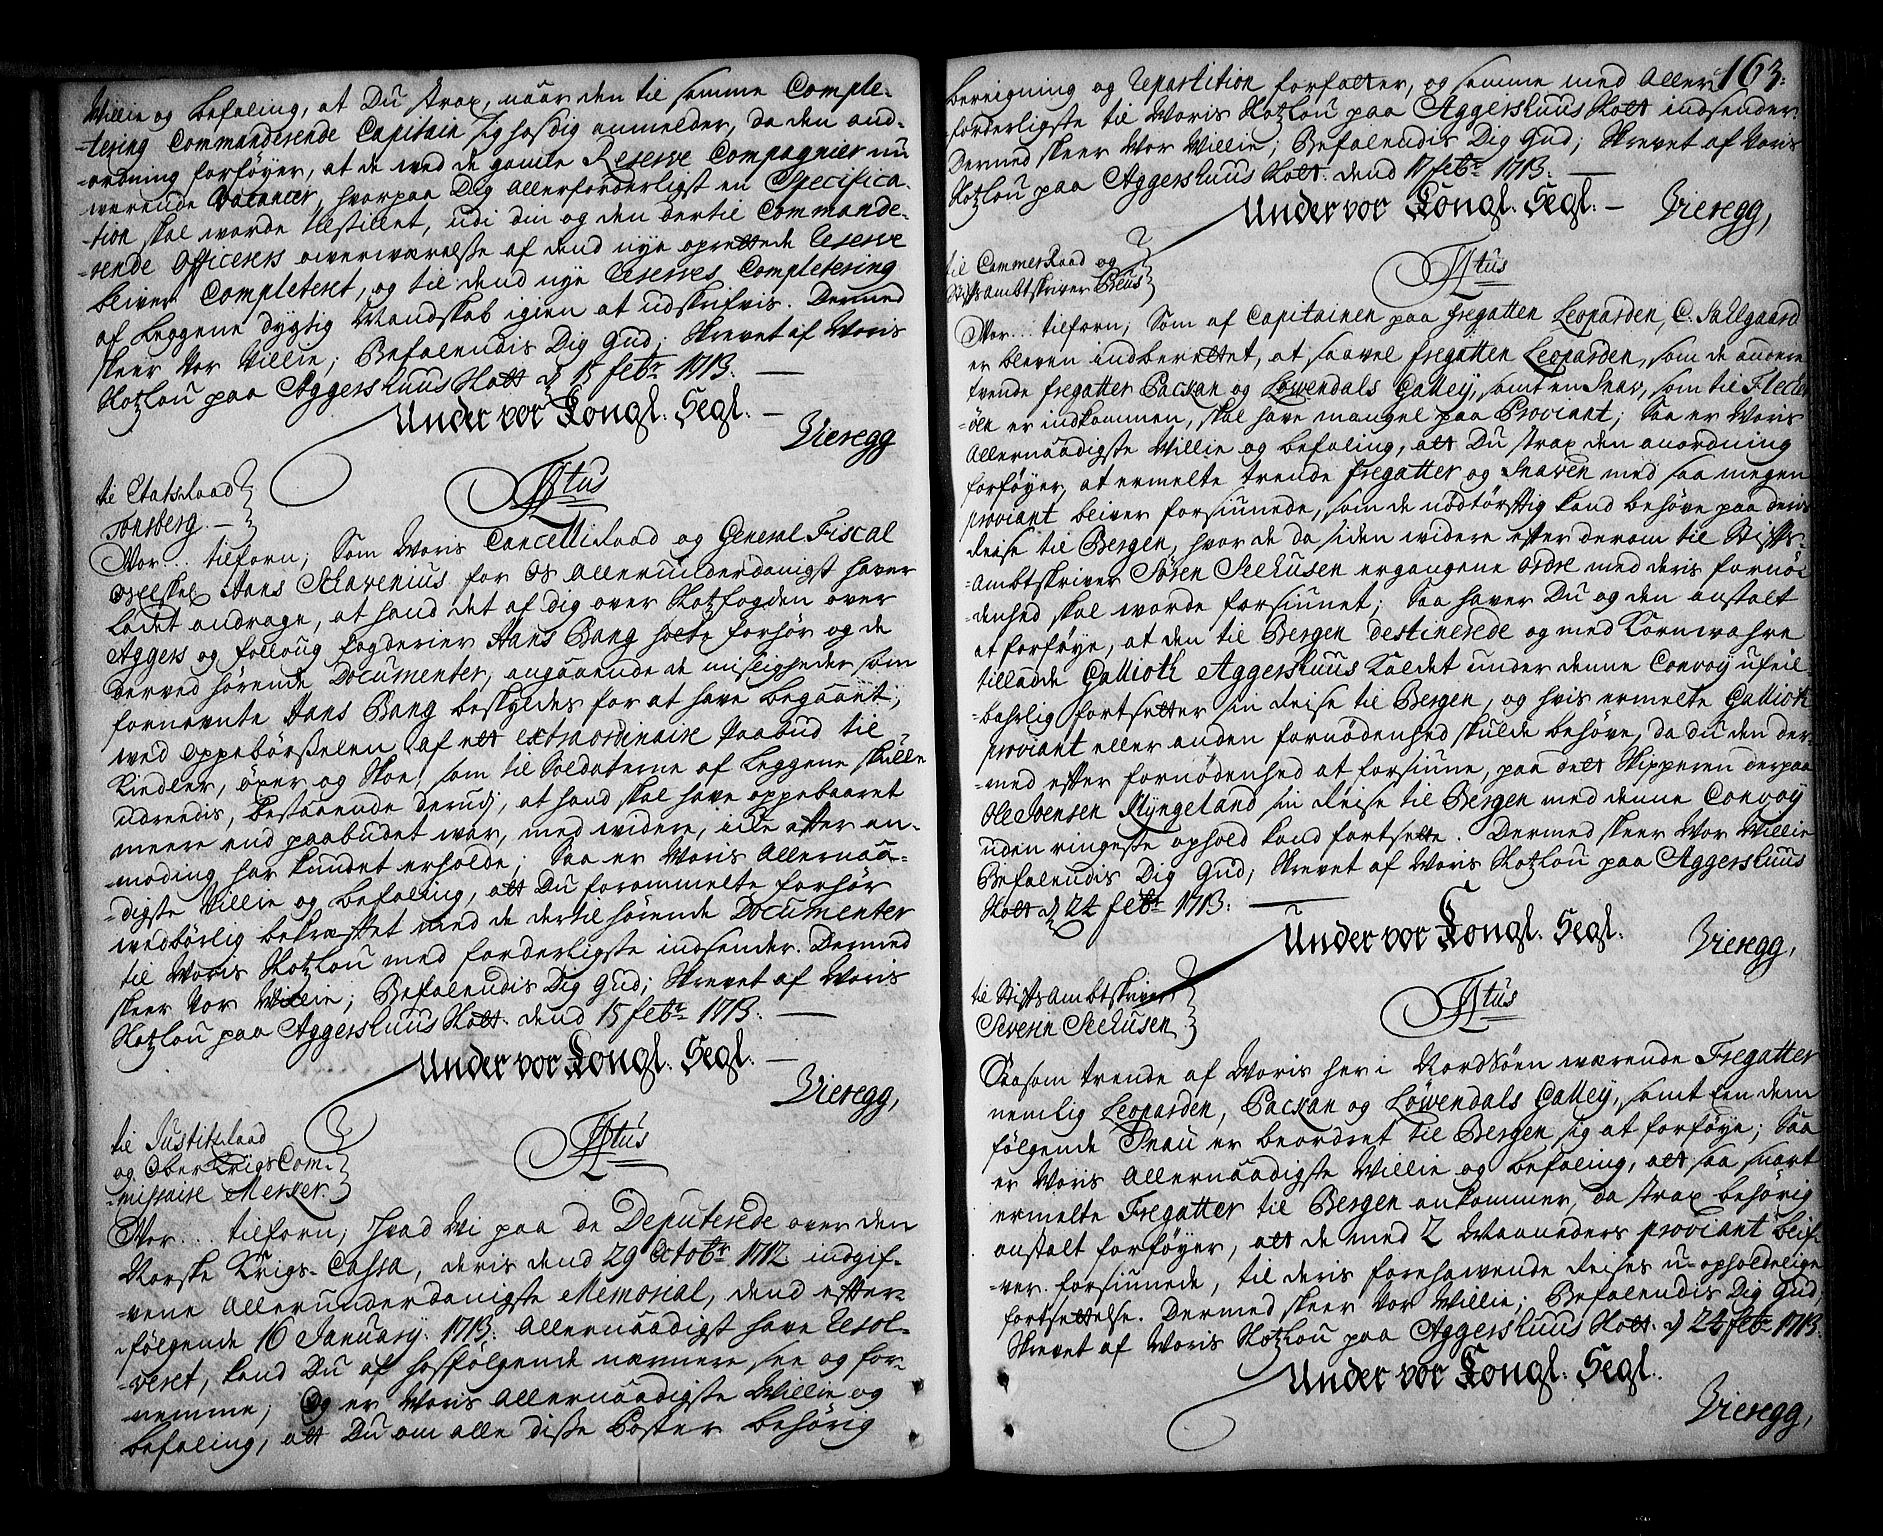 Willie og befaling, at Du strax, naar den til samme Comple-
-tering Commanderende Capitain sig hos dig anmelder, da den and-
-ordning forføyer, at de ved de gamle Reserve Compagnier nu
værende Vacancer, hvorpaa Dig allerforderligst en Specifica-
-tion skal worde tilstillet, udi din og den dertil Commande-
-rende Officerers overwærelse af dend nye oprettede Reserve
bliver Completeret, og til dend nye Reserves Completering
af Leggene dygtig Mandskab igien at udskrifvis. Dermed
skeer Vor Villie; Befalendis Dig Gud; Skrevet af Woris
Slotzlou paa Aggershuus Slott d 15 febr 1713. —
Under vor Kongl. Segl. —
Vieregg
til Etatsraad
Tonsberg. —
Fr: 4tus
Wor... tilforn; Som Woris Cancelliraad og General Fiscal
velskel Hans Schavenius for Os allerunderdanigst haver
ladet andrage, at hand det af dig over Slotzfogden over
Aggers og Follaug fogderier Hans Bang holte forhør og de
derved hørende Documenter, angaaende de misligheder, som
fornevnte Hans Bang beskyldes for at have begaaet,
wed oppebørselen af ett extraordinaire Paabud til
Kiedler, øxer og Skoe, som til Soldaterne af Leggene skulle
udredis, bestaaende derudj, at hand skal have oppebaaret
meere end paabudet war, med widere, icke efter an-
-moding har kundet erholde; Saa er Woris Allernaa-
-digste Villie og befaling, att Du forommelte forhør
wedbørlig bekræftet med de dertil hørende Documenter
til Woris Slotzlou med forderligste indsender. Dermed
skeer Vor Willie; Befalendis Dig Gud; Skrevet af Woris
Slotzlou paa Aggershuus Slott. dend 15 febr 1713. —
Under vor Kongl. Segl. —
Vieregg,
til Justitzraad
og Ober Krigs Com-
-missaire Merker.
Wor... tilforn; Hvad Wi paa de Deputerede over den
Norske Krigs-Cassa, deris dend 29 Octobr 1712 indgif-
-vene Allerunderdanigste Memorial, dend efter-
-følgende 16 January. 1713. Allernaadigst have Resol-
-veret, kand Du af hosfølgende nærmere see og for-
-nemme; Og er Woris Allernaadigste Willie og
befaling, att Du om alle disse Poster behørig
163.
bereigning og Repartition forfatter, og samme med Aller-
-forderligste til Woris Slotzlou paa Aggershuus Slott indsender
Dermed skeer Vor Willie; Befalendis Dig Gud; Skrevet af Woris
Slotzlou paa Aggershuus Slott. dend 17 febr 1713. —
Under vor Kongl. Segl. — Vieregg,
til Commer Raad og
Stiftsambtskriver Preus
Wor... tilforn; Som af Capitainen paa Fregatten Leoparden, C. Sallgaard
er bleven indberettet, at saavel fregatten Leoparden, som de andere
tvende fregatter Packan og Løwendals Galley, samt en Snav, som til Flecker
-øen er indkommen, skal have mangel paa Proviant; Saa er Woris
Allernaadigste Willie og befaling, att Du strax den anordning
forføyer, at ermelte trende fregatter og Snaven med saa megen
proviant bliver forsiunede, som de nødtørftig kand behøve paa deris
Reise til Bergen, hvor de da siden widere efter derom til Stifts-
-ambtskriver Søren Seehusen ergangene ordre med deris fornø-
-denhed skal worde forsiunet; Saa haver Du og den anstalt
at forføye, at den til Bergen destinerede og med Kornwahre
tilladde Gallioth Aggershuus Kaldet under denne Convoy ufeil-
-bahrlig fortsetter sin Reise til Bergen, og hvis ermelte Gallioth
proviant eller anden fornødenhed skulde behøve, da du den der-
-med efter fornødenhed at forsiune, paa dett Skipperen derpaa
Ole Svensen Klyngeland sin Reise til Bergen med denne Convoy
uden ringeste ophold kand fortsette. Dermed skeer Wor Willie
Befalendis Dig Gud; Skrevet af Woris Slotzlou paa Aggershuus
Slott d 24 febr 1713. —
Under vor Kongl. Segl. Vieregg,
til Stiftsambtskriver
Severin Seehusen
Saasom trende af Woris her i Nordsøen wærende Fregatter
nemlig Leoparden, Packan og Løwendals Galley, samt een dem
følgende Snau er beordret til Bergen sig at forføye; Saa
er Woris Allernaadigste Willie og befaling, att saa snart
ermelte Fregatter til Bergen ankommer, da strax behørig
anstalt forføyer, att de med 2 Maaneders proviant blif-
-ver forsiunede, til deris forehavende Reises u-opholdelige
fortsettelse. Dermed skeer Vor Willie; Befalendis Dig Gud;
Skrevet af Woris Slotzlou paa Aggershuus Slott. d 24 febr 1713.
Under vor Kongl. Segl.
Vieregg,